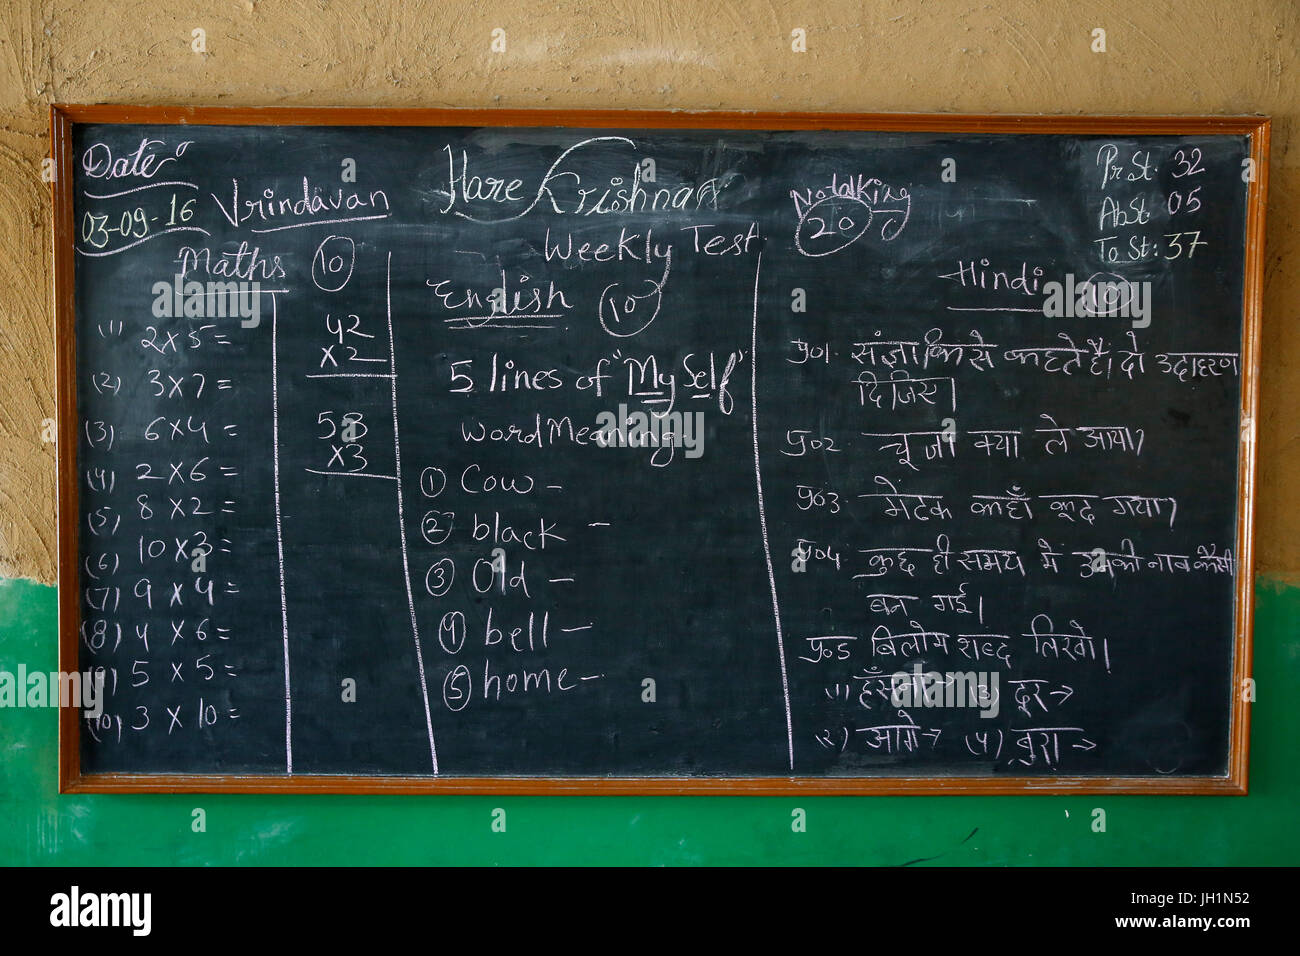 Date
03-09-16
Vrindavan
Hare Krishna
Weekly Test
No talking
20
Pr St. 32
Ab St. 05
To St: 37
Maths 10
(1) 2x5=
(2) 3x7=
(3) 6x4=
(4) 2x6=
(5) 8x2=
(6) 10x3=
(7) 9x4=
(8) 4x6=
(9) 5x5=
(10) 3x10=
42
x2
53
x3
English 10
5 lines of "My Self"
Word Meaning
1 Cow -
2 black -
3 Old -
4 bell -
5 home -
Hindi 10
प्र०1. संज्ञा किसे कहते हैं। दो उदाहरण
दिजिए।
प्र०2 चूजा क्या ले आया।
प्र०3. मेंढक कहाँ कूद गया।
प्र०4. कुछ ही समय में उनकी नाव कैसी
बन गई।
प्र०5 विलोम शब्द लिखो।
(1) हँसना→ (3) दूर→
(२) आगे→ (4) बुरा→
alamy
Image ID: JH1N52
www.alamy.com